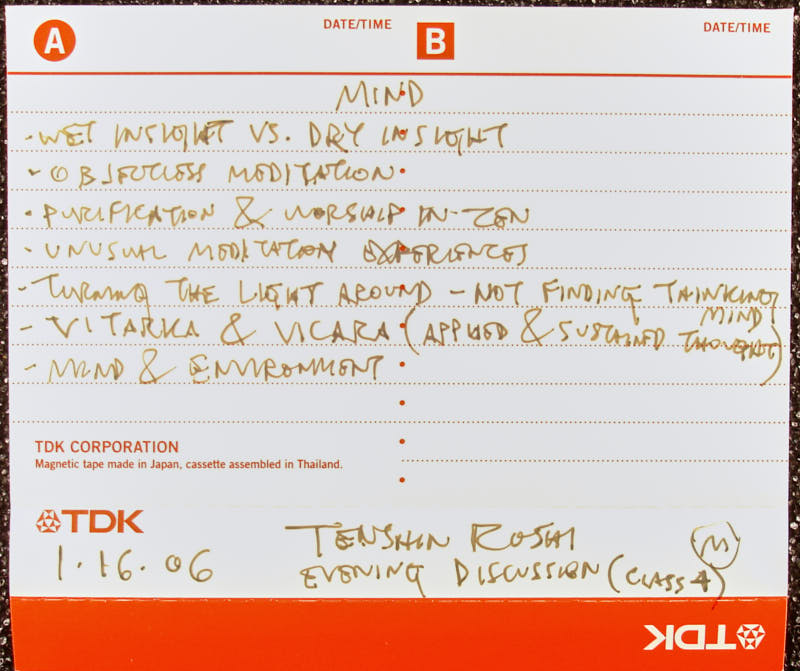 A DATE/TIME B DATE/TIME
MIND
- WET INSIGHT VS. DRY INSIGHT
- OBJECTLESS MEDITATION
- PURIFICATION & WORSHIP IN ZEN
- UNUSUAL MEDITATION EXPERIENCES
- TURNING THE LIGHT AROUND - NOT FINDING THINKING MIND
- VITARKA & VICARA (APPLIED & SUSTAINED THOUGHT)
- MIND & ENVIRONMENT
TDK CORPORATION
Magnetic tape made in Japan, cassette assembled in Thailand.
TDK
TENSHIN ROSHI
1.16.06
EVENING DISCUSSION (CLASS 4)
TDK